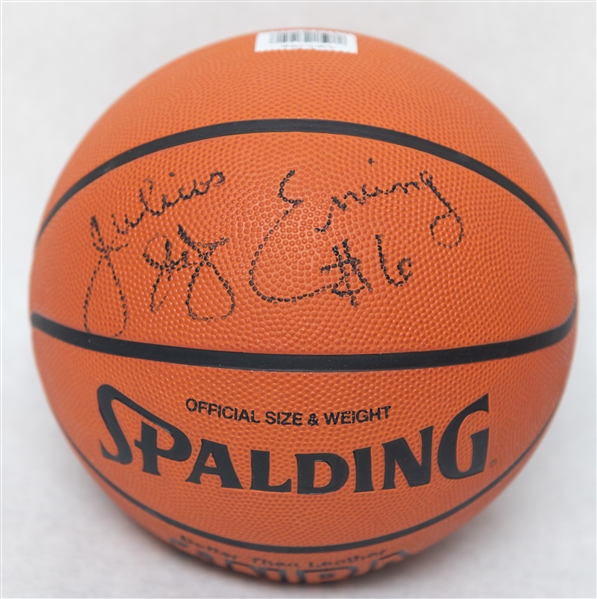 Julius Erving
#6
OFFICIAL SIZE & WEIGHT
SPALDING
Better Than Leather